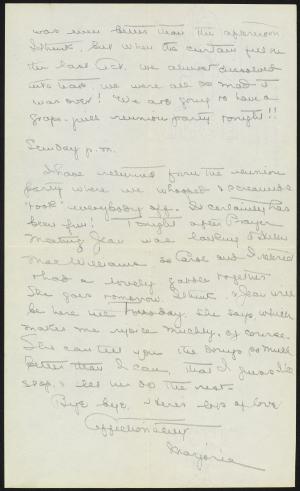 was even better than the afternoon
I think, but when the curtain fell on
the last Act, we almost dissolved
into tears, we were all so mad it
was over! We are going to have a
grape-juice reunion party tonight!!
Sunday p.m.
I have returned from the reunion
party where we whooped & screamed &
"took" everybody off. It certainly has
been fun! Tonight after Prayer
Meeting Jean was talking to Helen
Mac Williams so Carol and I
& had a lovely gabble together
She goes tomorrow, I think. Jean will
be here till Tuesday, she says which
makes me rejoice muchly, of course.
She can tell you the doings so much
better than I can, that I guess I'll
stop, & let her do the rest.
Bye bye, & Here's lots of love
Affectionately
Marjorie